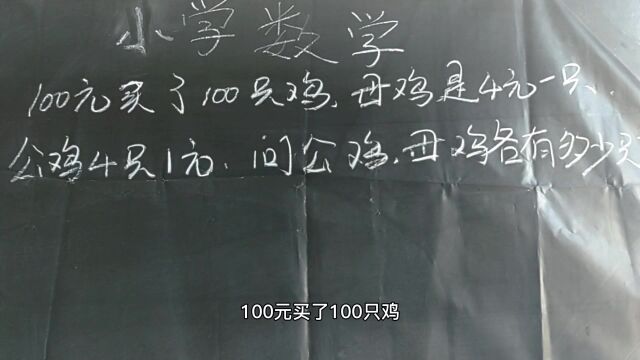 小学数学
100元买了100只鸡,母鸡是4元一只,
公鸡4只1元,问公鸡,母鸡各有多少只
100元买了100只鸡